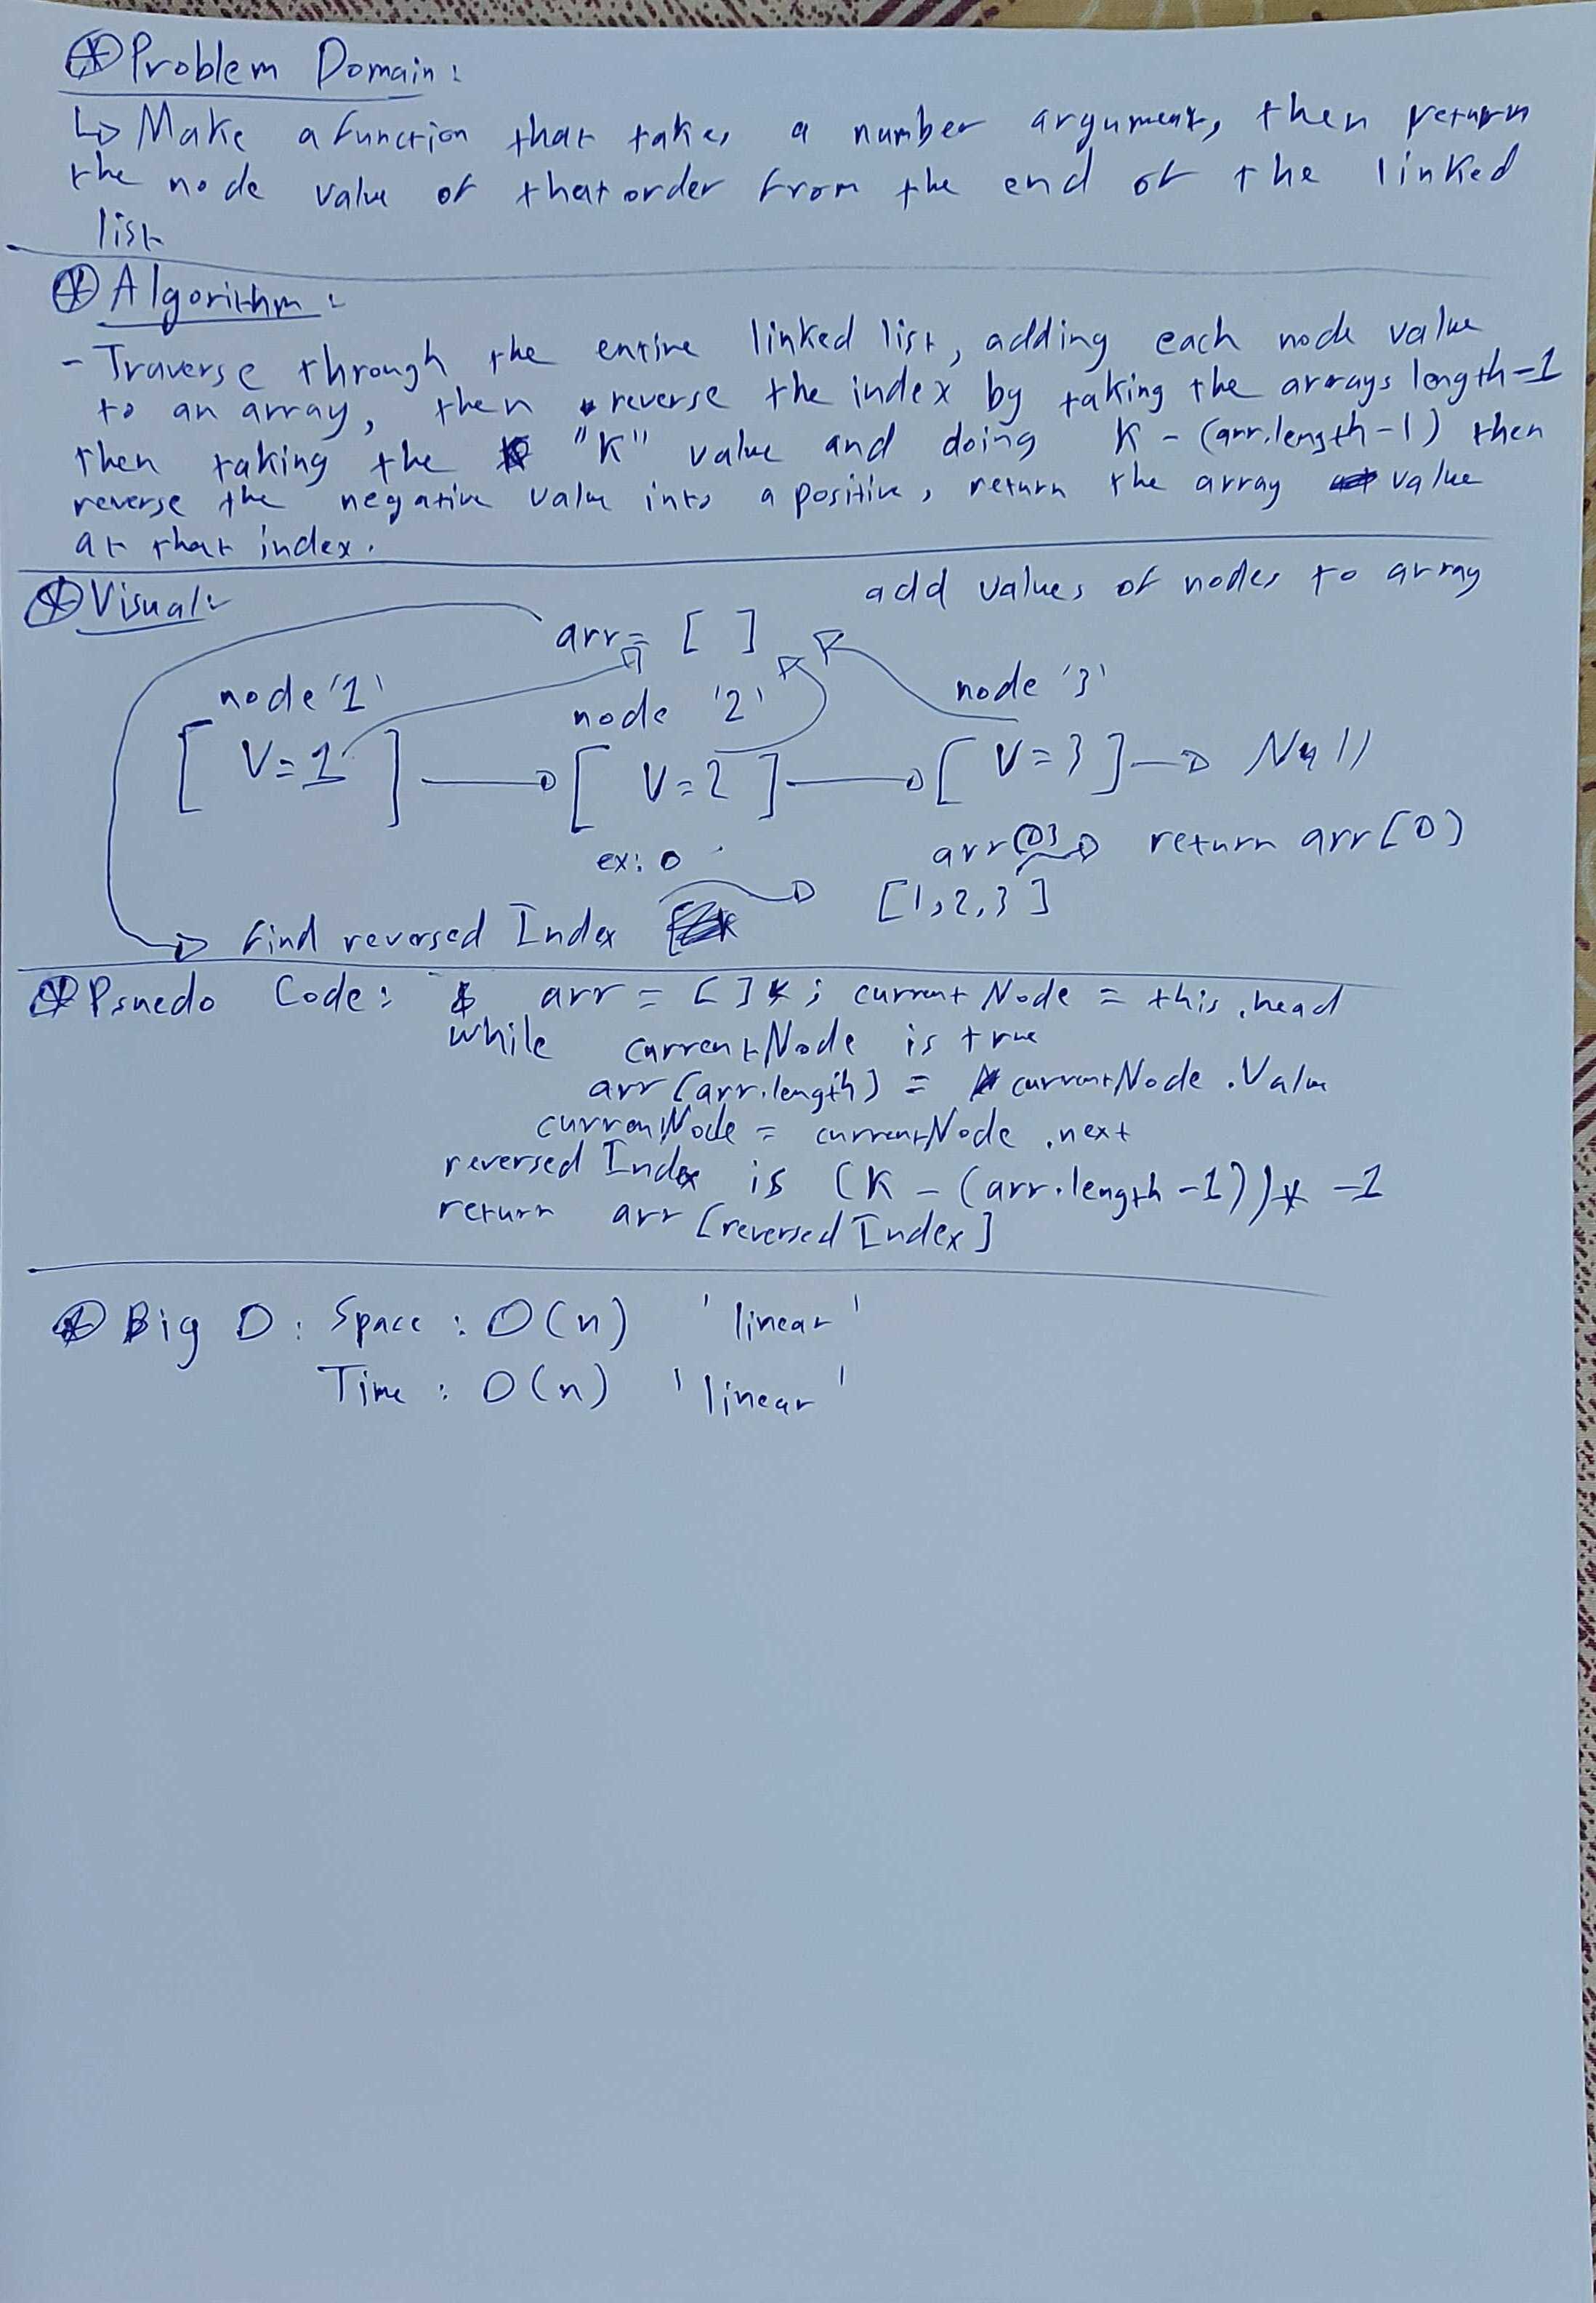 Problem Domain:
Make a function that takes a number argument, then return
the node value of that order from the end of the linked
list
Algorithm:
- Traverse through the entire linked list, adding each node value
to an array, then reverse the index by taking the arrays length-1
then taking the "K" value and doing K - (arr.length-1) then
reverse the negative value into a positive, return the array value
at that index.
Visual:
add values of nodes to array
arr = [ ]
node '1'
node '2'
node '3'
[ V=1 ] [ V=2 ] [ V=3 ] Null
ex: 0
arr[0] return arr[0]
[1,2,3]
find reversed Index
Psuedo Code: arr = [ ] ; current Node = this.head
while currentNode is true
arr[arr.length] = currentNode.Value
currenNode = currentNode.next
reversed Index is (K - (arr.length -1)) * -1
return arr [reversed Index]
Big O: Space : O(n) 'linear'
Time : O(n) 'linear'